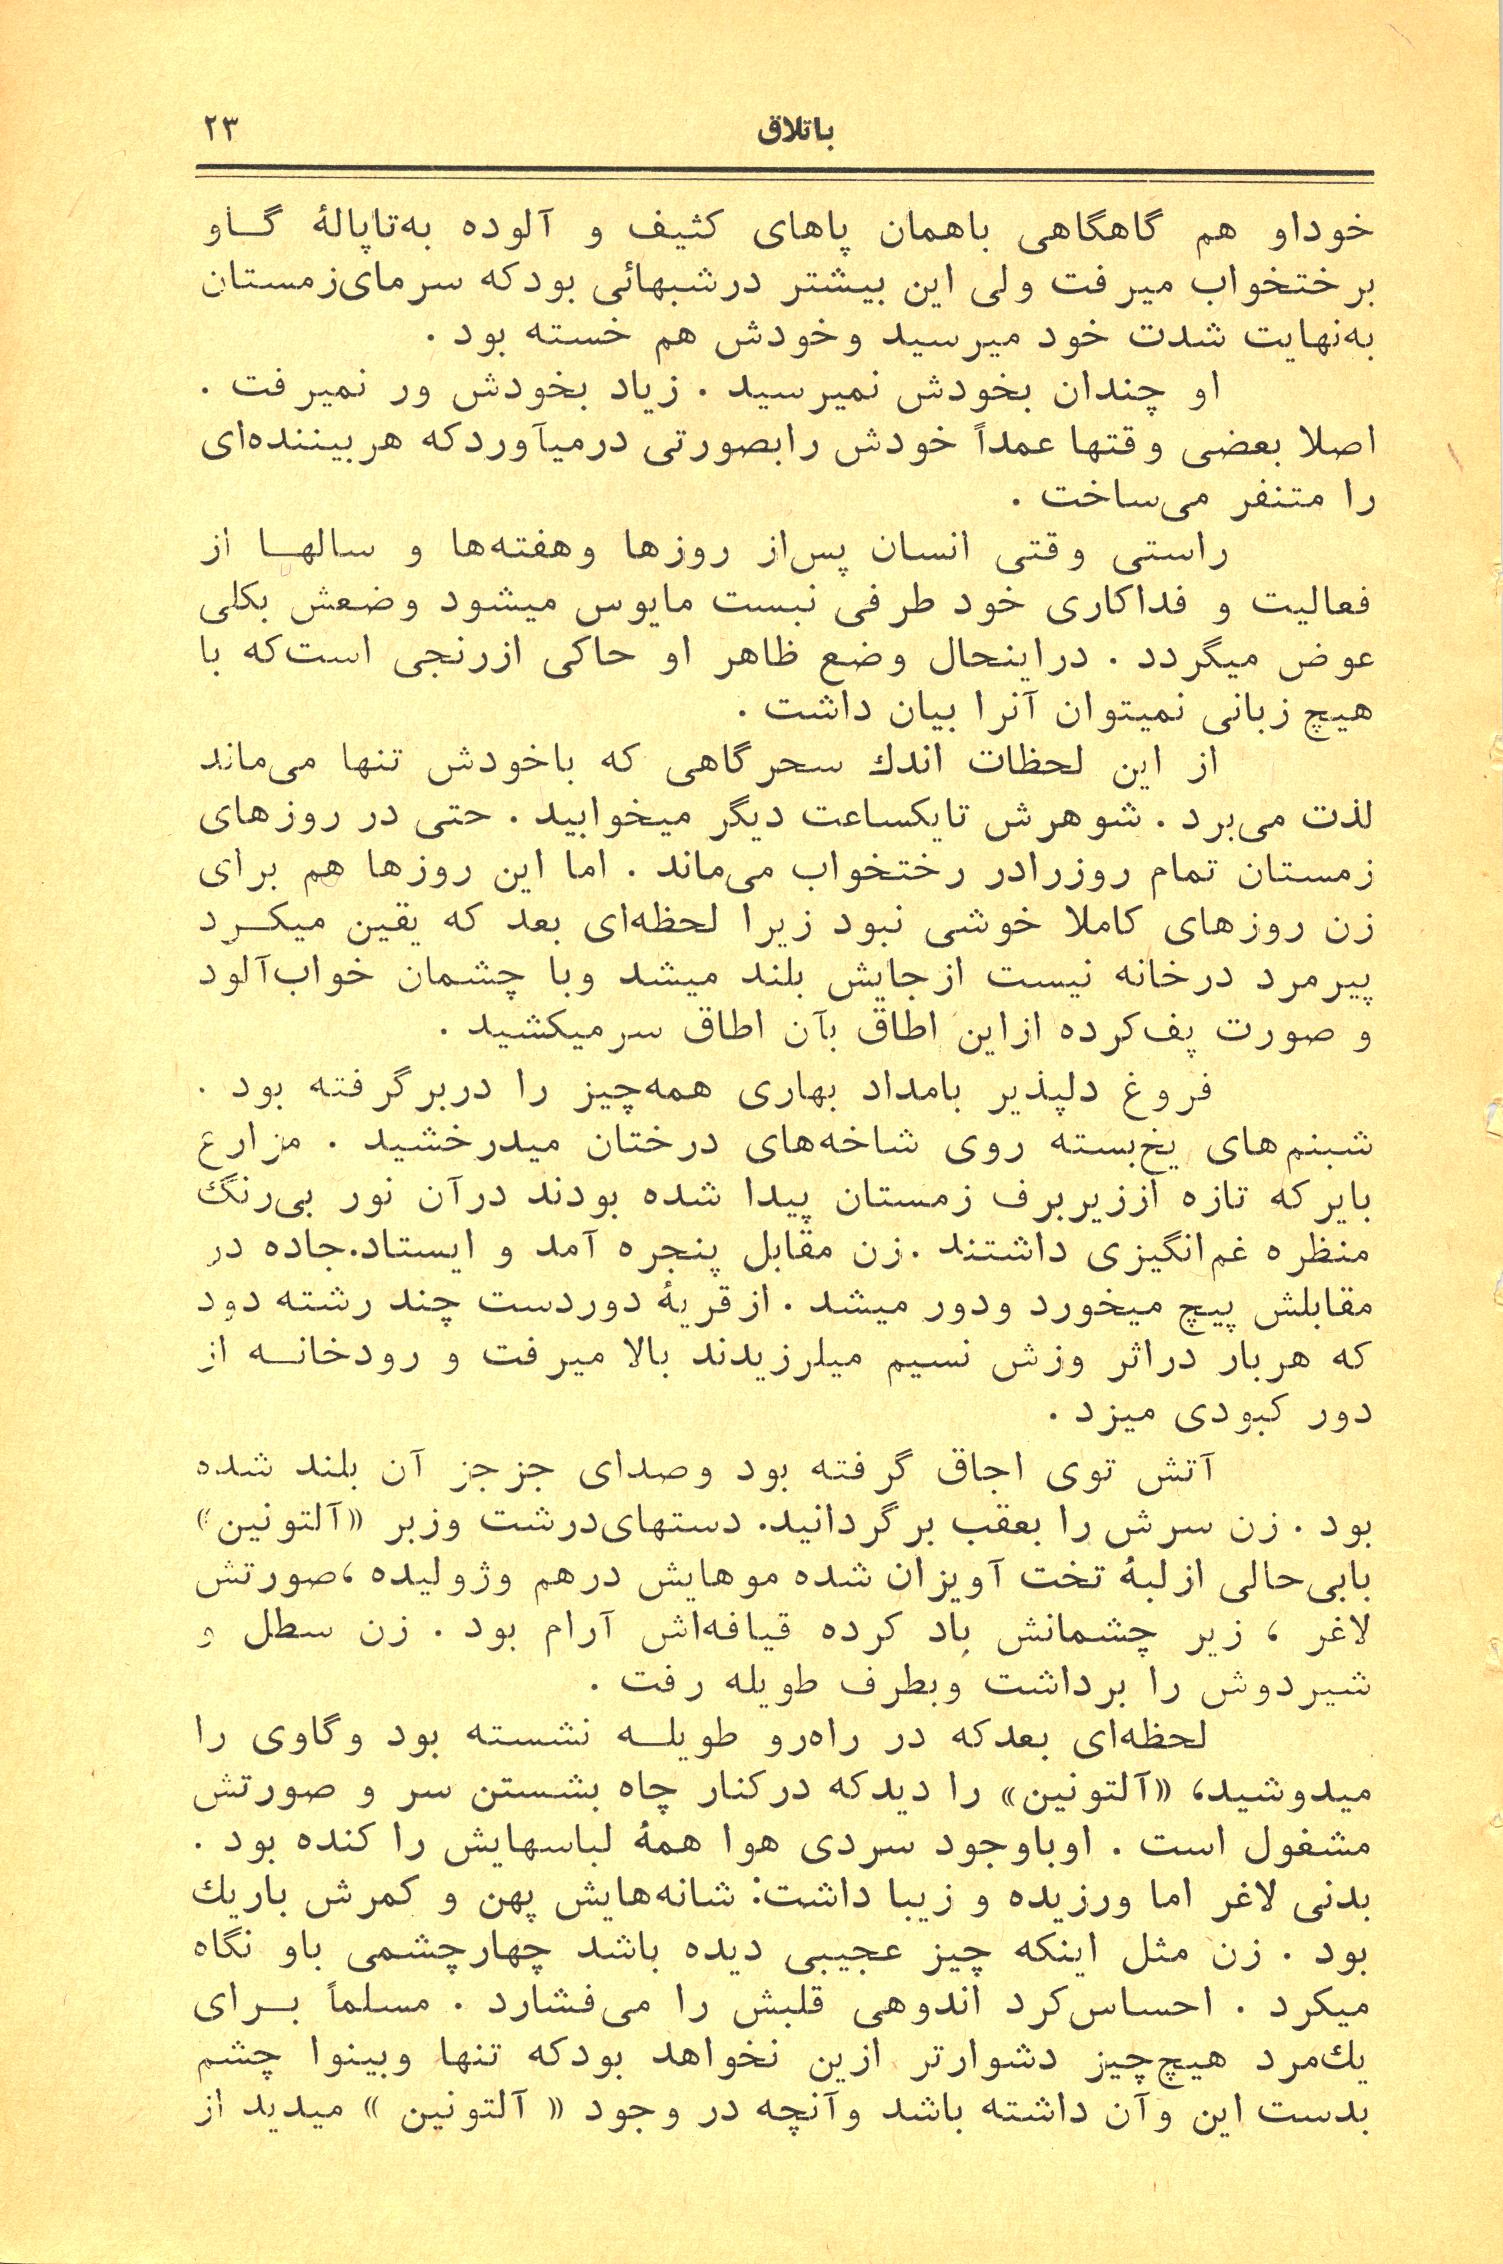 باتلاق ۲۳
خوداو هم گاهگاهی باهمان پاهای کثیف و آلوده به‌تاپالهٔ گاو
برختخواب میرفت ولی این بیشتر درشبهائی بودکه سرمای‌زمستان
به‌نهایت شدت خود میرسید وخودش هم خسته بود .
او چندان بخودش نمیرسید . زیاد بخودش ور نمیرفت .
اصلا بعضی وقتها عمداً خودش رابصورتی درمیآوردکه هربیننده‌ای
را متنفر می‌ساخت .
راستی وقتی انسان پس‌از روزها وهفته‌ها و سالها از
فعالیت و فداکاری خود طرفی نبست مایوس میشود وضعش بکلی
عوض میگردد . دراینحال وضع ظاهر او حاکی ازرنجی است‌که با
هیچ زبانی نمیتوان آنرا بیان داشت .
از این لحظات اندك سحرگاهی که باخودش تنها می‌ماند
لذت می‌برد . شوهرش تایکساعت دیگر میخوابید . حتی در روزهای
زمستان تمام روزرادر رختخواب می‌ماند . اما این روزها هم برای
زن روزهای کاملا خوشی نبود زیرا لحظه‌ای بعد که یقین میکرد
پیرمرد درخانه نیست ازجایش بلند میشد وبا چشمان خواب‌آلود
و صورت پف‌کرده ازاین اطاق بآن اطاق سرمیکشید .
فروغ دلپذیر بامداد بهاری همه‌چیز را دربرگرفته بود .
شبنم‌های یخ‌بسته روی شاخه‌های درختان میدرخشید . مزارع
بایرکه تازه اززیربرف زمستان پیدا شده بودند درآن نور بی‌رنگ
منظره غم‌انگیزی داشتند .زن مقابل پنجره آمد و ایستاد.جاده در
مقابلش پیچ میخورد ودور میشد . ازقریهٔ دوردست چند رشته دود
که هربار دراثر وزش نسیم میلرزیدند بالا میرفت و رودخانه از
دور کبودی میزد .
آتش توی اجاق گرفته بود وصدای جزجز آن بلند شده
بود . زن سرش را بعقب برگردانید. دستهای‌درشت وزبر «آلتونین»
بابی‌حالی ازلبهٔ تخت آویزان شده موهایش درهم وژولیده ،صورتش
لاغر ، زیر چشمانش باد کرده قیافه‌اش آرام بود . زن سطل و
شیردوش را برداشت وبطرف طویله رفت .
لحظه‌ای بعدکه در راه‌رو طویله نشسته بود وگاوی را
میدوشید، «آلتونین» را دیدکه درکنار چاه بشستن سر و صورتش
مشغول است . اوباوجود سردی هوا همهٔ لباسهایش را کنده بود .
بدنی لاغر اما ورزیده و زیبا داشت: شانه‌هایش پهن و کمرش باریك
بود . زن مثل اینکه چیز عجیبی دیده باشد چهارچشمی باو نگاه
میکرد . احساس‌کرد اندوهی قلبش را می‌فشارد . مسلماً برای
یك‌مرد هیچ‌چیز دشوارتر ازین نخواهد بودکه تنها وبینوا چشم
بدست این وآن داشته باشد وآنچه در وجود « آلتونین » میدید از